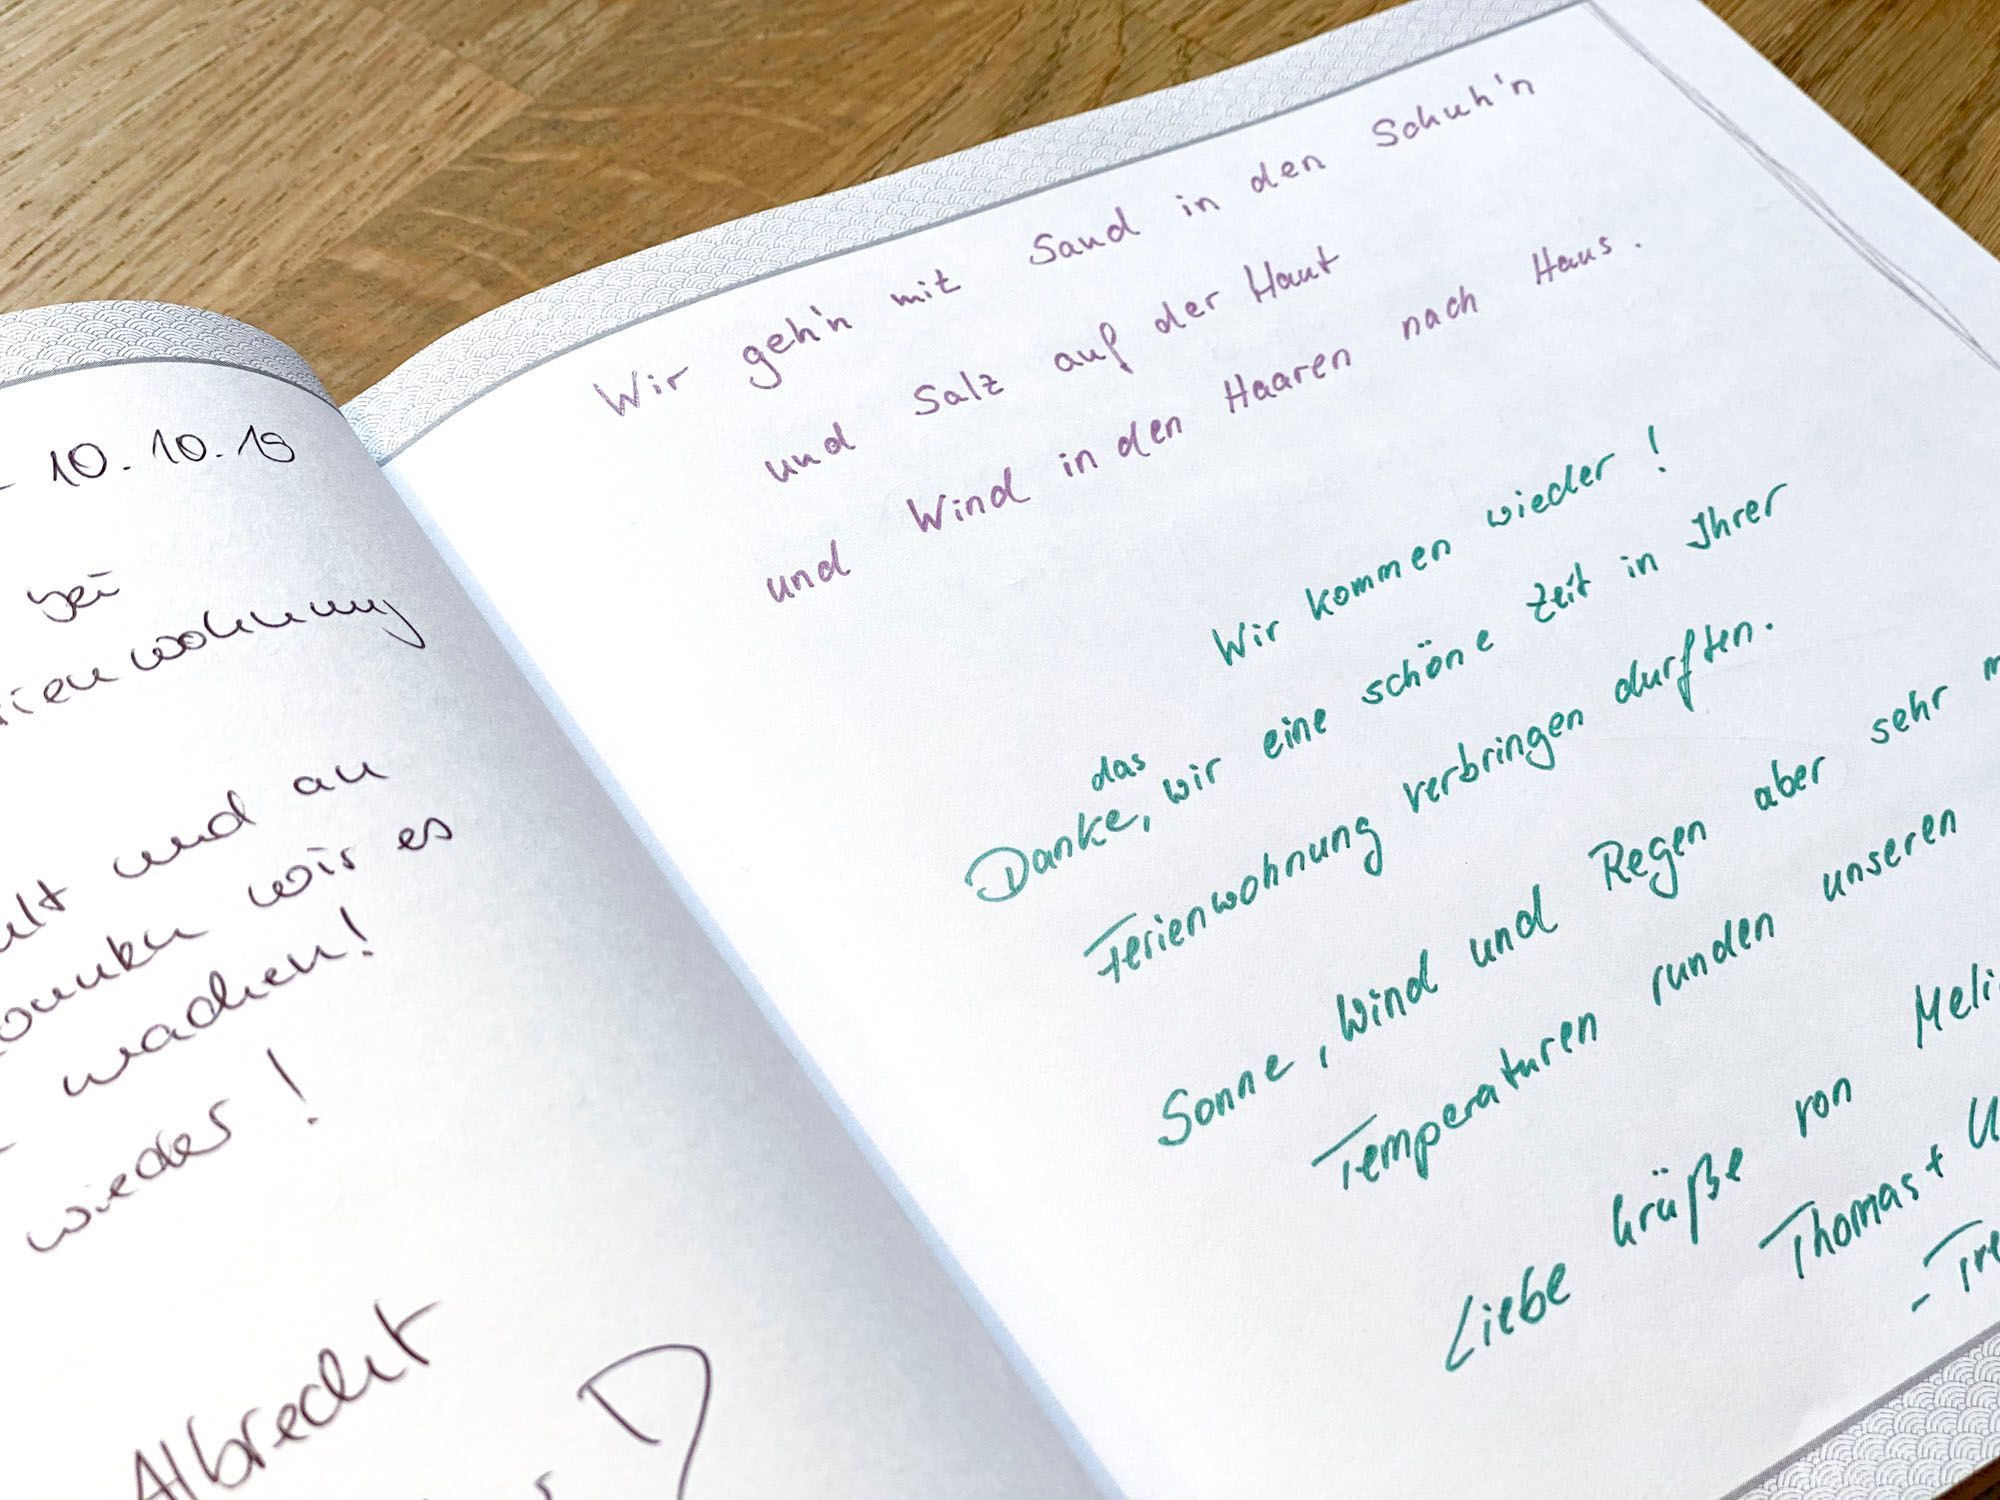 10.10.19
bei
wohnung
und an
wir es
machen!
wieder!
Albrecht
Wir geh'n mit Sand in den Schuh'n
und Salz auf der Haut
und Wind in den Haaren nach Haus.
Wir kommen wieder!
das
Danke, wir eine schöne Zeit in Ihrer
Ferienwohnung verbringen durften.
Sonne, Wind und Regen aber sehr
Temperaturen runden unseren
Liebe Grüße von
Thomas +